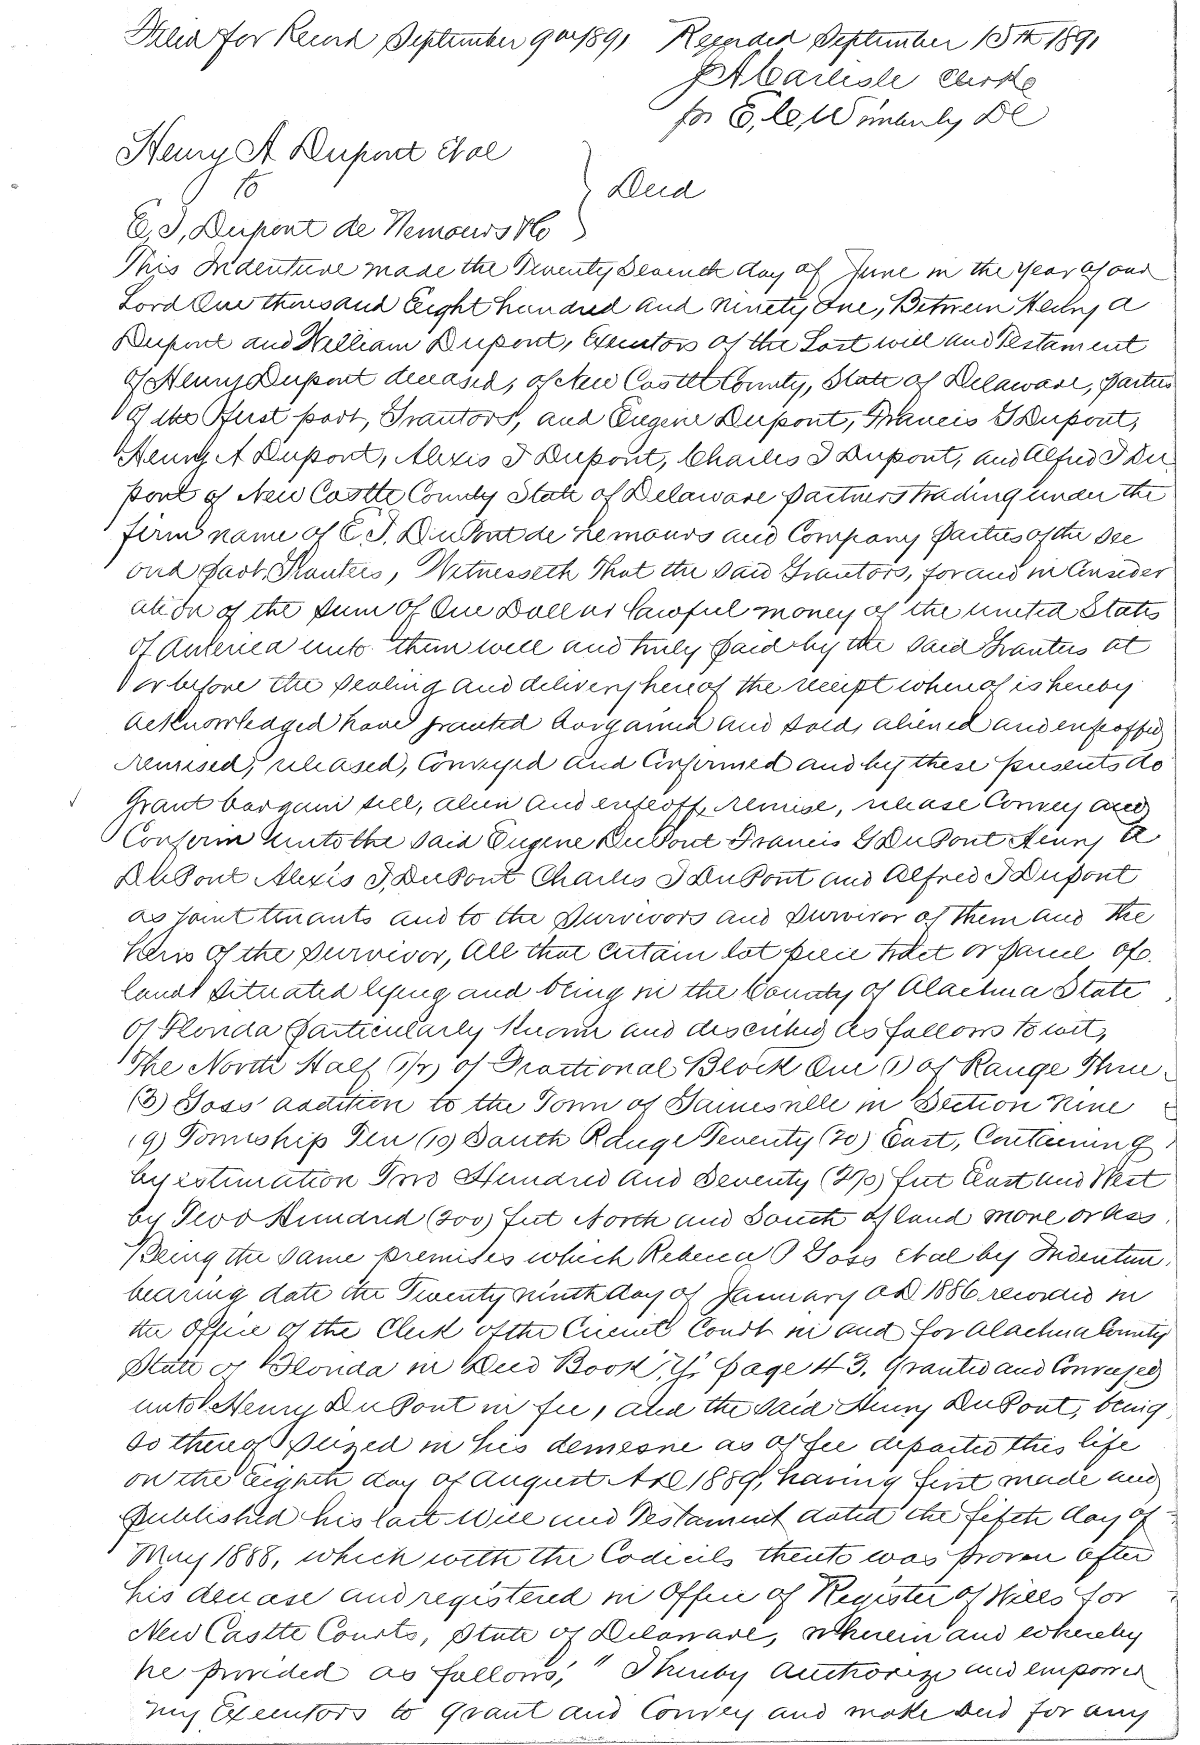 Filed for Record September 9th 1891 Recorded September 15th 1891
J A Carlisle Clerk
for E, C, Wimberly DC
Henry A Dupont et al
to
} Deed
E, I, Dupont de Nemours & Co
This Indenture made the Twenty Seventh day of June in the Year of our
Lord One thousand Eight hundred and ninety One, Between Henry A
Dupont and William Dupont, Executors of the Last will and Testament
of Henry Dupont deceased, of New Castle County, State of Delaware, parties
of the first part, Grantors, and Eugene Dupont, Francis G Dupont,
Henry A Dupont, Alexis I Dupont, Charles I Dupont, and Alfred I Du
pont of New Castle County State of Delaware partners trading under the
firm name of E. I. DuPont de Nemours and Company parties of the sec
ond part, Grantees, Witnesseth That the said Grantors, for and in Consider
ation of the sum of One Dollar lawful money of the united States
of America unto them well and truly paid by the said Grantees at
or before the sealing and delivery hereof the receipt whereof is hereby
acknowledged have granted bargained and sold, aliened and enfeoffed
remised, released, Conveyed and Confirmed and by these presents do
Grant bargain sell, alien and enfeoff, remise, release Convey and
Confirm unto the said Eugene DuPont Francis G DuPont Henry A
DuPont Alexis I, DuPont Charles I DuPont and Alfred I Dupont
as joint tenants and to the survivors and survivor of them and the
heirs of the survivor, All that certain lot piece tract or parcel of
land situated lying and being in the County of Alachua State
of Florida particularly known and described as follows to wit,
The North Half (1/2) of Fractional Block One (1) of Range Three
(3) Goss' addition to the Town of Gainesville in Section nine
(9) Township Ten (10) South Range Twenty (20) East, Containing
by estimation Two Hundred and Seventy (270) feet East and West
by Two Hundred (200) feet North and South of land more or less.
Being the same premises which Rebecca P Goss et al by Indenture
bearing date the Twenty ninth day of January AD 1886 recorded in
the Office of the Clerk of the Circuit Court in and for Alachua County
State of Florida in Deed Book "Y" page 43. Granted and Conveyed
unto Henry DuPont in fee, and the said Henry DuPont, being
so thereof seized in his demesne as of fee departed this life
on the Eighth day of August A.D. 1889, having first made and
published his last Will and Testament dated the fifth day of
May 1888, which with the Codicils thereto was proven after
his decease and registered in Office of Register of Wills for
New Castle County, State of Delaware, wherein and whereby
he provided as follows, "I hereby authorize and empower
my Executors to Grant and Convey and make deed for any